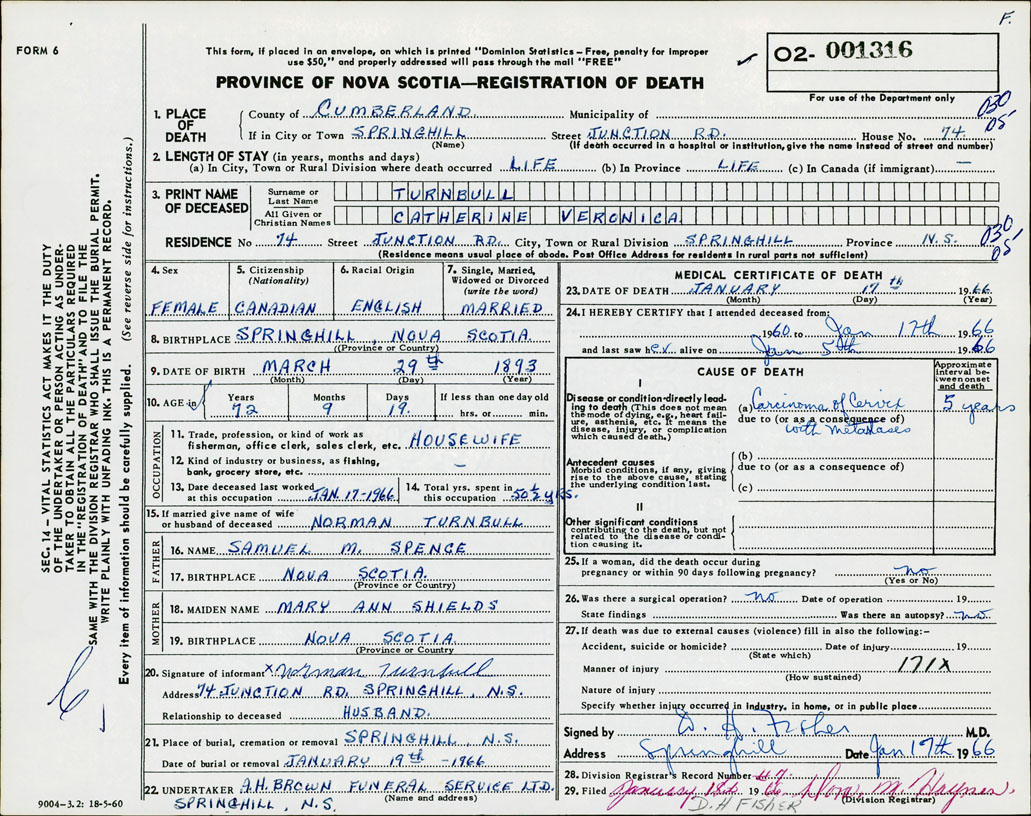 F.
FORM 6
This form, if placed in an envelope, on which is printed "Dominion Statistics – Free, penalty for improper
use $50," and properly addressed will pass through the mail "FREE"
✓ 02- 001316
For use of the Department only
PROVINCE OF NOVA SCOTIA—REGISTRATION OF DEATH
1. PLACE OF DEATH
County of CUMBERLAND Municipality of 030
If in City or Town SPRINGHILL Street JUNCTION RD. House No. 74 05
(Name) (If death occurred in a hospital or institution, give the name instead of street and number)
2. LENGTH OF STAY (in years, months and days)
(a) In City, Town or Rural Division where death occurred LIFE (b) In Province LIFE (c) In Canada (if immigrant) —
3. PRINT NAME OF DECEASED
Surname or Last Name TURNBULL
All Given or Christian Names CATHERINE VERONICA
RESIDENCE No 74 Street JUNCTION RD. City, Town or Rural Division SPRINGHILL Province N.S. 030 05
(Residence means usual place of abode. Post Office Address for residents in rural parts not sufficient)
SEC. 14 – VITAL STATISTICS ACT MAKES IT THE DUTY
OF THE UNDERTAKER OR PERSON ACTING AS UNDER-
TAKER TO OBTAIN ALL THE PARTICULARS REQUIRED
IN THE "REGISTRATION OF DEATH" AND TO FILE THE
SAME WITH THE DIVISION REGISTRAR WHO SHALL ISSUE THE BURIAL PERMIT.
WRITE PLAINLY WITH UNFADING INK. THIS IS A PERMANENT RECORD.
Every item of information should be carefully supplied. (See reverse side for instructions.)
4. Sex
FEMALE
5. Citizenship
(Nationality)
CANADIAN
6. Racial Origin
ENGLISH
7. Single, Married,
Widowed or Divorced
(write the word)
MARRIED
8. BIRTHPLACE SPRINGHILL, NOVA SCOTIA
(Province or Country)
9. DATE OF BIRTH MARCH 29th 1893
(Month) (Day) (Year)
10. AGE in Years Months Days If less than one day old
72 9 19. hrs. or min.
OCCUPATION
11. Trade, profession, or kind of work as
fisherman, office clerk, sales clerk, etc. HOUSEWIFE
12. Kind of industry or business, as fishing,
bank, grocery store, etc. —
13. Date deceased last worked
at this occupation JAN. 17-1966
14. Total yrs. spent in
this occupation 50½ YRS.
15. If married give name of wife
or husband of deceased NORMAN TURNBULL
FATHER
16. NAME SAMUEL M. SPENCE
17. BIRTHPLACE NOVA SCOTIA.
(Province or Country)
MOTHER
18. MAIDEN NAME MARY ANN SHIELDS
19. BIRTHPLACE NOVA SCOTIA
(Province or Country
20. Signature of informant x Norman Turnbull
Address 74 JUNCTION RD. SPRINGHILL, N.S.
Relationship to deceased HUSBAND.
21. Place of burial, cremation or removal SPRINGHILL, N.S.
Date of burial or removal JANUARY 19th -1966
22. UNDERTAKER A.H. BROWN FUNERAL SERVICE LTD.
(Name and address)
SPRINGHILL, N.S.
9004–3.2: 18-5-60
MEDICAL CERTIFICATE OF DEATH
23. DATE OF DEATH JANUARY 17th 1966
(Month) (Day) (Year)
24. I HEREBY CERTIFY that I attended deceased from:
1960 to Jan 17th 1966
and last saw her alive on Jan 5th 1966
CAUSE OF DEATH
Approximate
interval be-
tween onset
and death
I
Disease or condition-directly lead-
ing to death (This does not mean
the mode of dying, e.g., heart fail-
ure, asthenia, etc. It means the
disease, injury, or complication
which caused death.)
(a) Carcinoma of Cervix 5 years
due to (or as a consequence of)
with Metastases
Antecedent causes
Morbid conditions, if any, giving
rise to the above cause, stating
the underlying condition last.
(b)
due to (or as a consequence of)
(c)
II
Other significant conditions
contributing to the death, but not
related to the disease or condi-
tion causing it.
25. If a woman, did the death occur during
pregnancy or within 90 days following pregnancy? no
(Yes or No)
26. Was there a surgical operation? no Date of operation 19
State findings Was there an autopsy? no
27. If death was due to external causes (violence) fill in also the following:–
Accident, suicide or homicide? Date of injury 19
(State which)
Manner of injury 171X
(How sustained)
Nature of injury
Specify whether injury occurred in industry, in home, or in public place
Signed by D. H. Fisher M.D.
Address Springhill Date Jan 17th 1966
28. Division Registrar's Record Number #7
29. Filed January 18th 1966 M. Haynes
(Division Registrar)
D.H FISHER